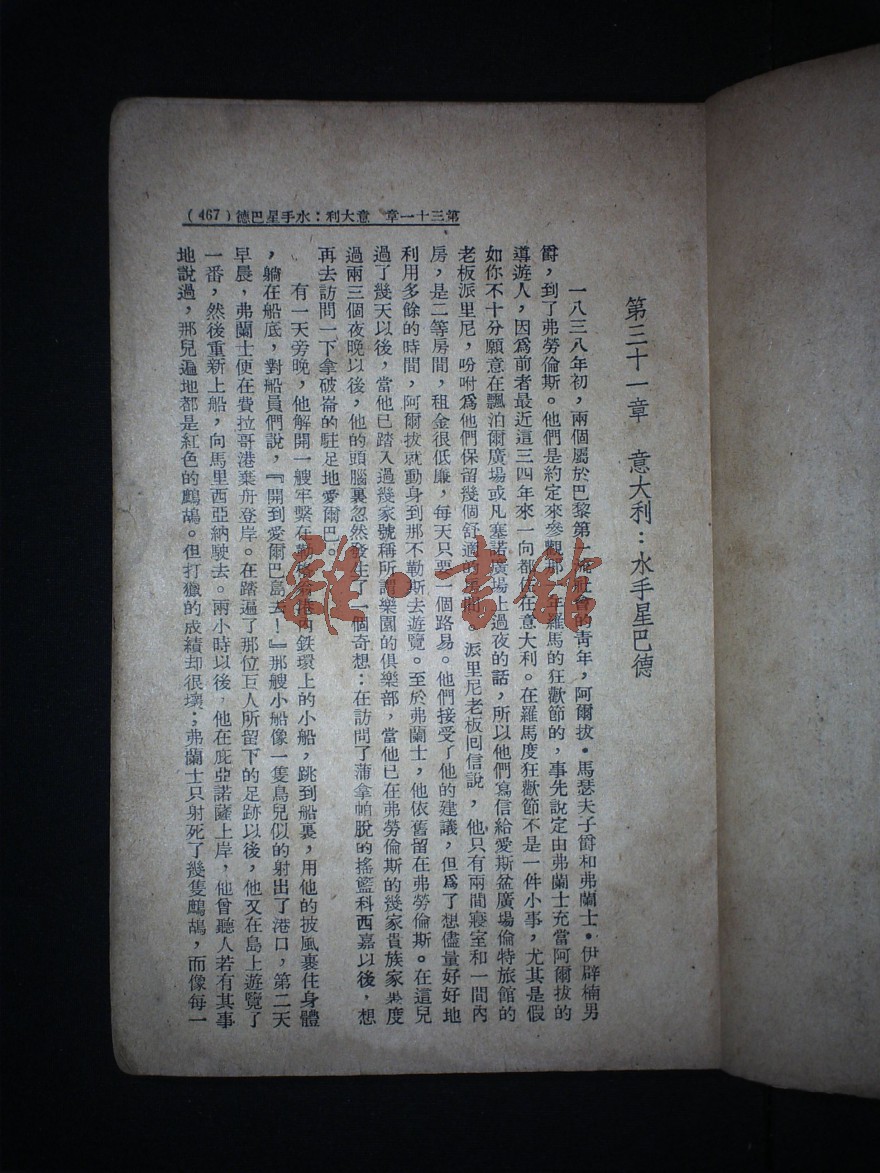 第三十一章 意大利：水手星巴德（467）
第三十一章 意大利：水手星巴德
一八三八年初，兩個屬於巴黎第一流社會的青年，阿爾拔・馬瑟夫子爵和弗蘭士・伊辟楠男
爵，到了弗勞倫斯。他們是約定來參觀那一年羅馬的狂歡節的，事先說定由弗蘭士充當阿爾拔的
導遊人，因爲前者最近這三四年來一向都住在意大利。在羅馬度狂歡節不是一件小事，尤其是假
如你不十分願意在飄泊爾廣場或凡塞諾廣場上過夜的話，所以他們寫信給愛斯盆廣場倫特旅館的
老板派里尼，吩咐爲他們保留幾個舒適的房間。派里尼老板回信說，他只有兩間寢室和一間內
房，是二等房間，租金很低廉，每天只要一個路易。他們接受了他的建議，但爲了想儘量好好地
利用多餘的時間，阿爾拔就動身到那不勒斯去遊覽。至於弗蘭士，他依舊留在弗勞倫斯。在這兒
過了幾天以後，當他已踏入過幾家號稱所謂樂園的俱樂部，當他已在弗勞倫斯的幾家貴族家裏度
過兩三個夜晚以後，他的頭腦裏忽然發生了一個奇想：在訪問了蒲拿帕脫的搖籃科西嘉以後，想
再去訪問一下拿破崙的駐足地愛爾巴。
有一天旁晚，他解開一艘牢繫在勒格翁港內鉄環上的小船，跳到船裏，用他的披風裹住身體
，躺在船底，對船員們說，『開到愛爾巴島去！』那艘小船像一隻鳥兒似的射出了港口，第二天
早晨，弗蘭士便在費拉哥港棄舟登岸。在踏遍了那位巨人所留下的足跡以後，他又在島上遊覽了
一番，然後重新上船，向馬里西亞納駛去。兩小時以後，他在庇亞諾薩上岸，他曾聽人若有其事
地說過，那兒遍地都是紅色的鷓鴣。但打獵的成績却很壞；弗蘭士只射死了幾隻鷓鴣，而像每一
雜・書館